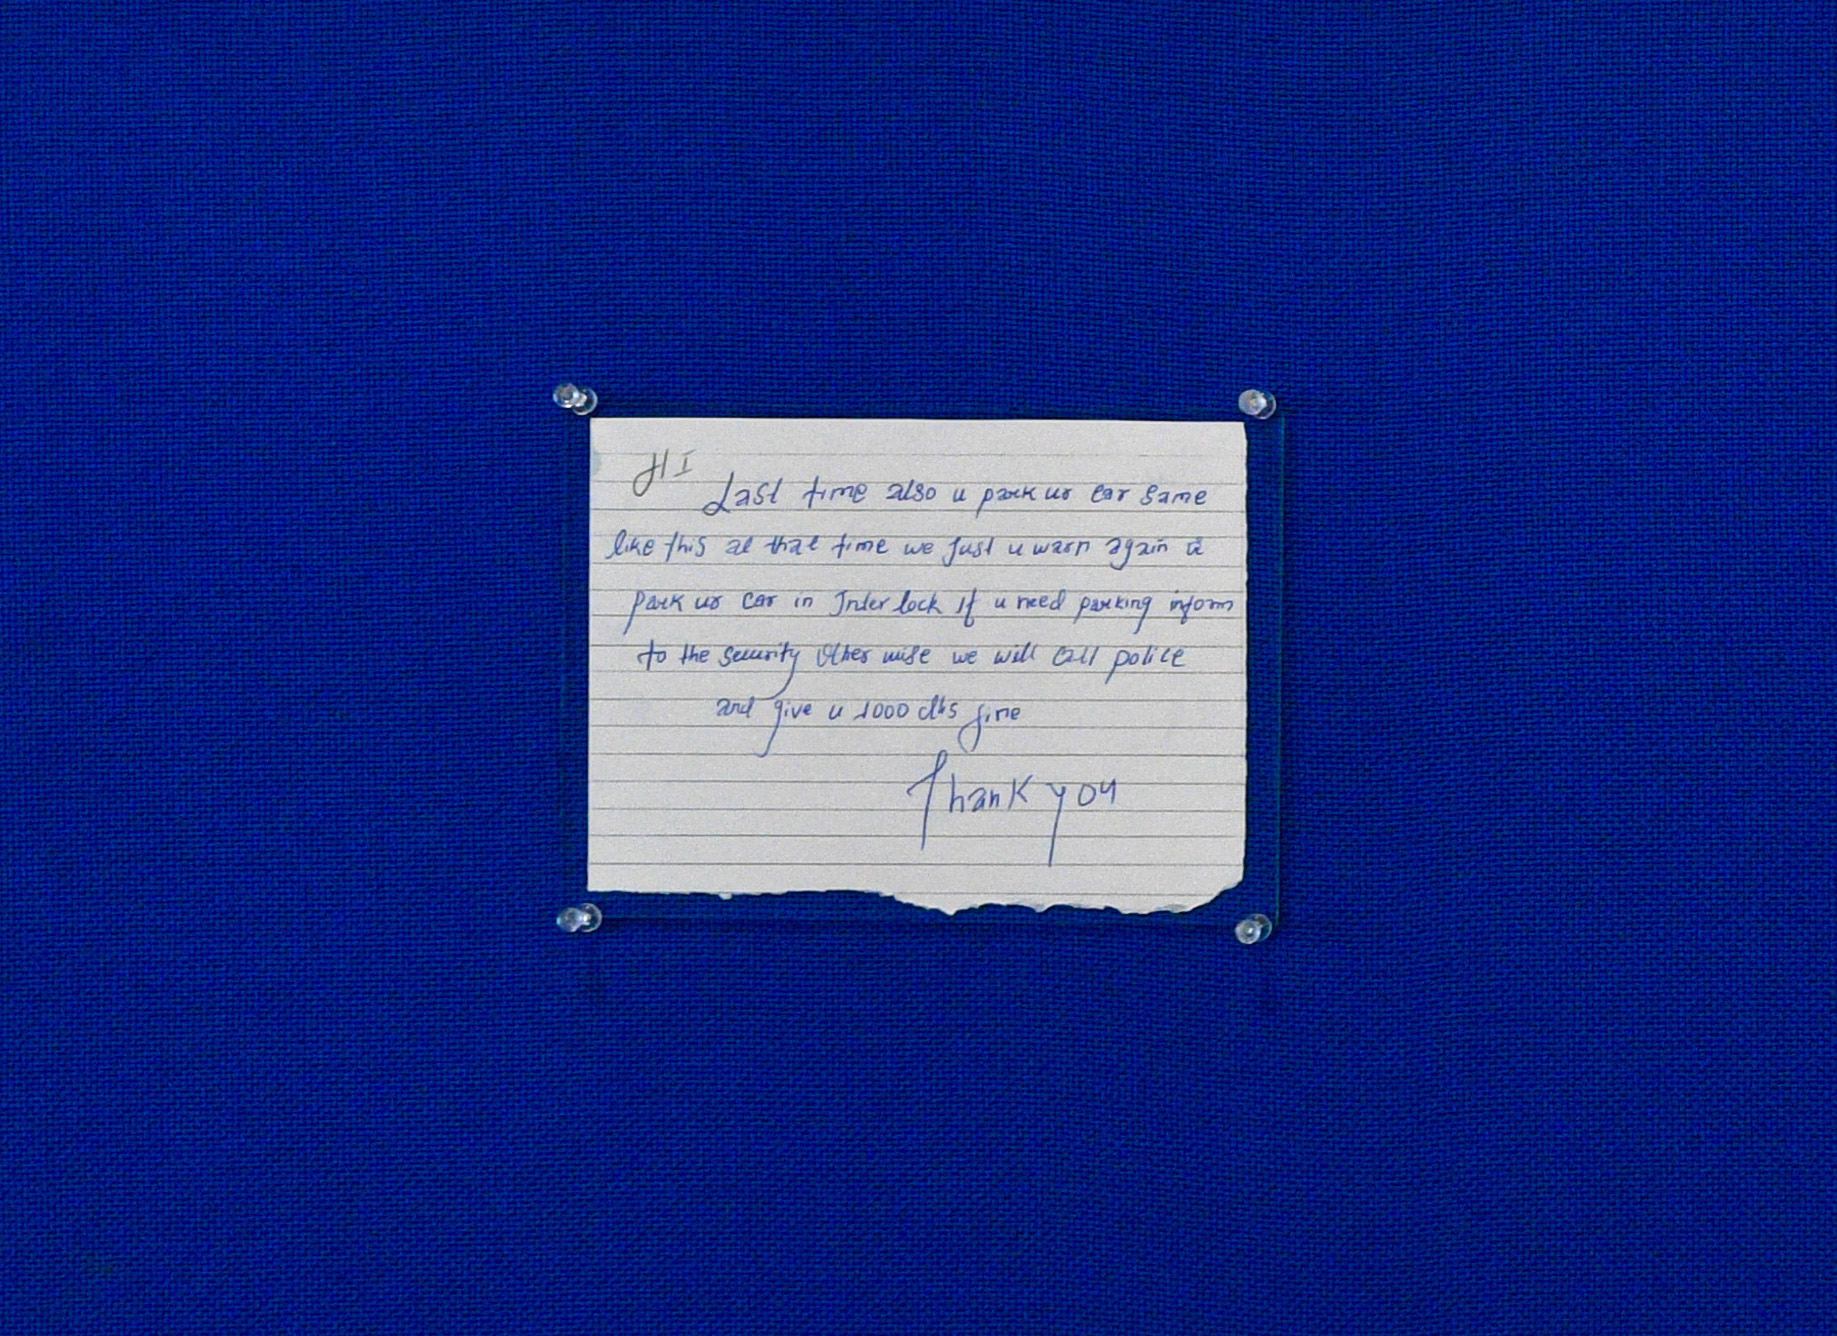 HI
Last time also u park ur car same
like this at that time we just u warn again u
park ur car in Inter lock If u need parking inform
to the security other wise we will call police
and give u 1000 dhs fine
Thank you